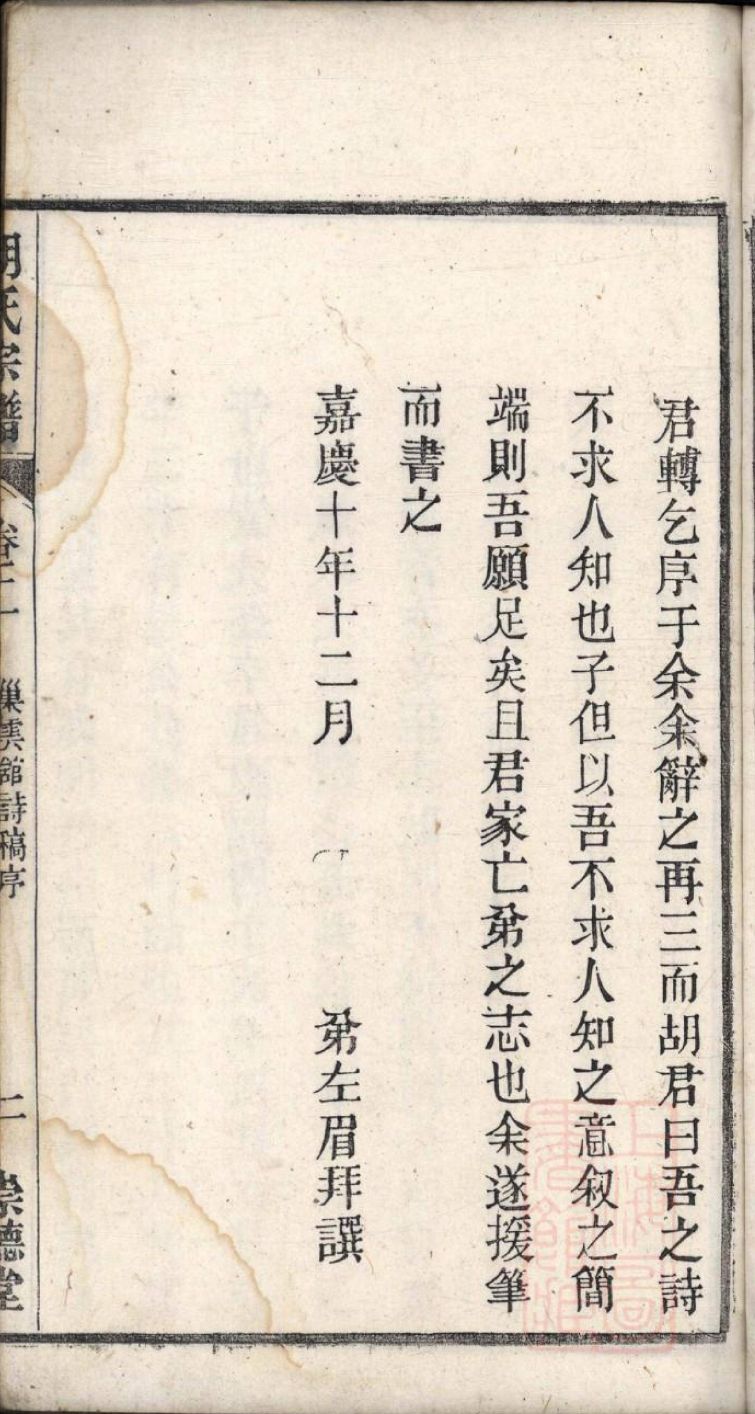 君轉乞序于余余辭之再三而胡君曰吾之詩
不求人知也子但以吾不求人知之意叙之簡
端則吾願足矣且君家亡弟之志也余遂援筆
而書之
嘉慶十年十二月　弟左眉拜譔
胡氏宗譜　卷二　巢雲館詩稿序　二　崇德堂